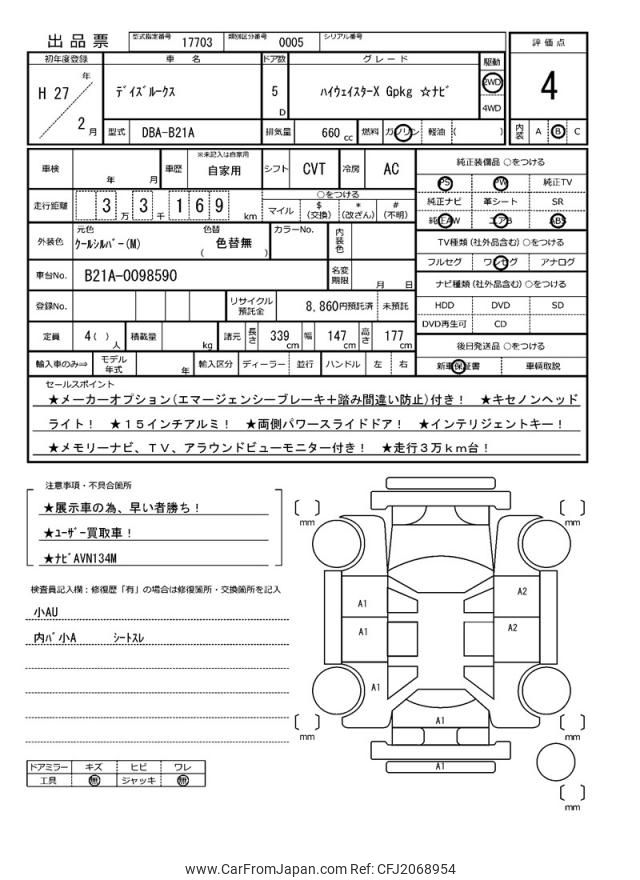 出品票 型式指定番号 17703 類別区分番号 0005 シリアル番号
評価点
4
内装 A B C
初年度登録 車名 ドア数 グレード 駆動
H 27 年 2 月
デイズルークス 5 D ハイウェイスターX Gpkg ☆ナビ 2WD 4WD
型式 DBA-B21A 排気量 660 cc 燃料 ガソリン 軽油 ( )
車検 年 月 車歴 ※未記入は自家用 自家用 シフト CVT 冷房 AC
走行距離 3 万 3 千 1 6 9 km
○をつける
マイル $ (交換) * (改ざん) # (不明)
外装色 元色 クールシルバー(M) 色替 色替無 ( ) カラーNo. 内装色
車台No. B21A-0098590 名変期限 月 日
登録No. リサイクル預託金 8,860円預託済 未預託
定員 4( ) 人 積載量 kg 諸元 長さ 339 cm 幅 147 cm 高さ 177 cm
輸入車のみ⇒ モデル年式 年 輸入区分 ディーラー 並行 ハンドル 左 右
純正装備品 ○をつける
PS PW 純正TV
純正ナビ 革シート SR
純正AW エアB ABS
TV種類(社外品含む)○をつける
フルセグ ワンセグ アナログ
ナビ種類(社外品含む)○をつける
HDD DVD SD
DVD再生可 CD
後日発送品 ○をつける
新車保証書 車輌取説
セールスポイント
★メーカーオプション(エマージェンシーブレーキ+踏み間違い防止)付き! ★キセノンヘッド
ライト! ★15インチアルミ! ★両側パワースライドドア! ★インテリジェントキー!
★メモリーナビ、TV、アラウンドビューモニター付き! ★走行3万km台!
注意事項・不具合箇所
★展示車の為、早い者勝ち!
★ユーザー買取車!
★ナビAVN134M
検査員記入欄:修復歴「有」の場合は修復箇所・交換箇所を記入
小AU
内バ小A シートスレ
ドアミラー キズ ヒビ ワレ
工具 無 ジャッキ 無
mm
mm
A1 A2
A1 A2
A1
A1
A1
mm
mm
mm
www.CarFromJapan.com Ref: CFJ2068954